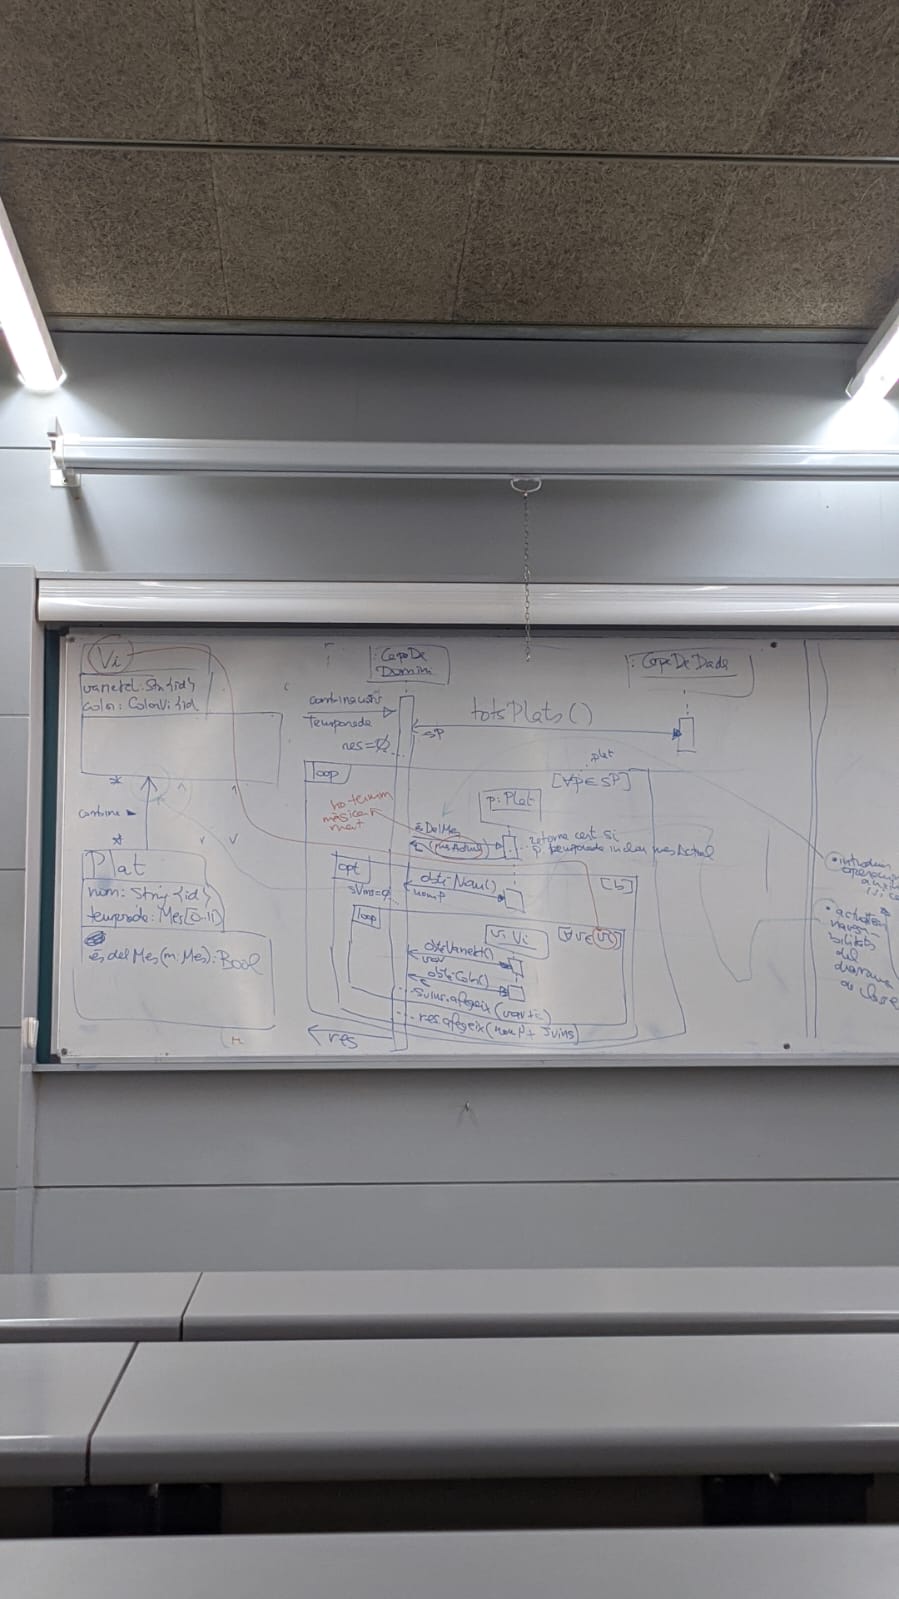 Vi
varietat: Str {id}
color: ColorVi {id}
*
combina ►
*
Plat
nom: String {id}
temporada: Mes[0..11]
ésdelMes(m: Mes): Bool
: CapaDe
Domini
: CapaDeDade
combinacions
Temporada
totsPlats()
sP
res=Ø
loop
[∀p∈sP]
: plat
p: Plat
no tenim
més
ment
ésDelMes
(mesActual)
retorna cert si
p. temporada inclou mesActual
opt
[b]
sVins=Ø
obté Nom()
nomP
loop
v: Vi
[∀v∈
obtéVarietat()
var
obtéColor()
sVins.afegeix(var+c)
res.afegeix(nomP+ sVins)
res
• introduir
• actualitzar
navega-
bilitats
del
diagrama
de classe